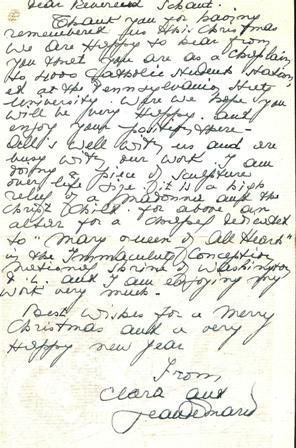 Dear Reverend Schaut.
Thank you for having
remembered us this Christmas
we are happy to hear from
you that you are as a chaplain
to 4000 Catholic student station
ed at the Pennsylvania State
University. Were we hope you
will be very happy. and
enjoy your position there -
All's well with us and are
busy with our work. I am
doing a piece of sculpture
over life size. it is a high
relief of a Madonna and the
Christ Child. for above an
alter for a chapel dedicated
to "Mary Queen of All Hearts"
in the Immaculate Conception
National Shrine of Washington
D.C. and I am enjoying my
work very much -
Best Wishes for a Merry
Christmas and a very
Happy new year
From,
Clara and